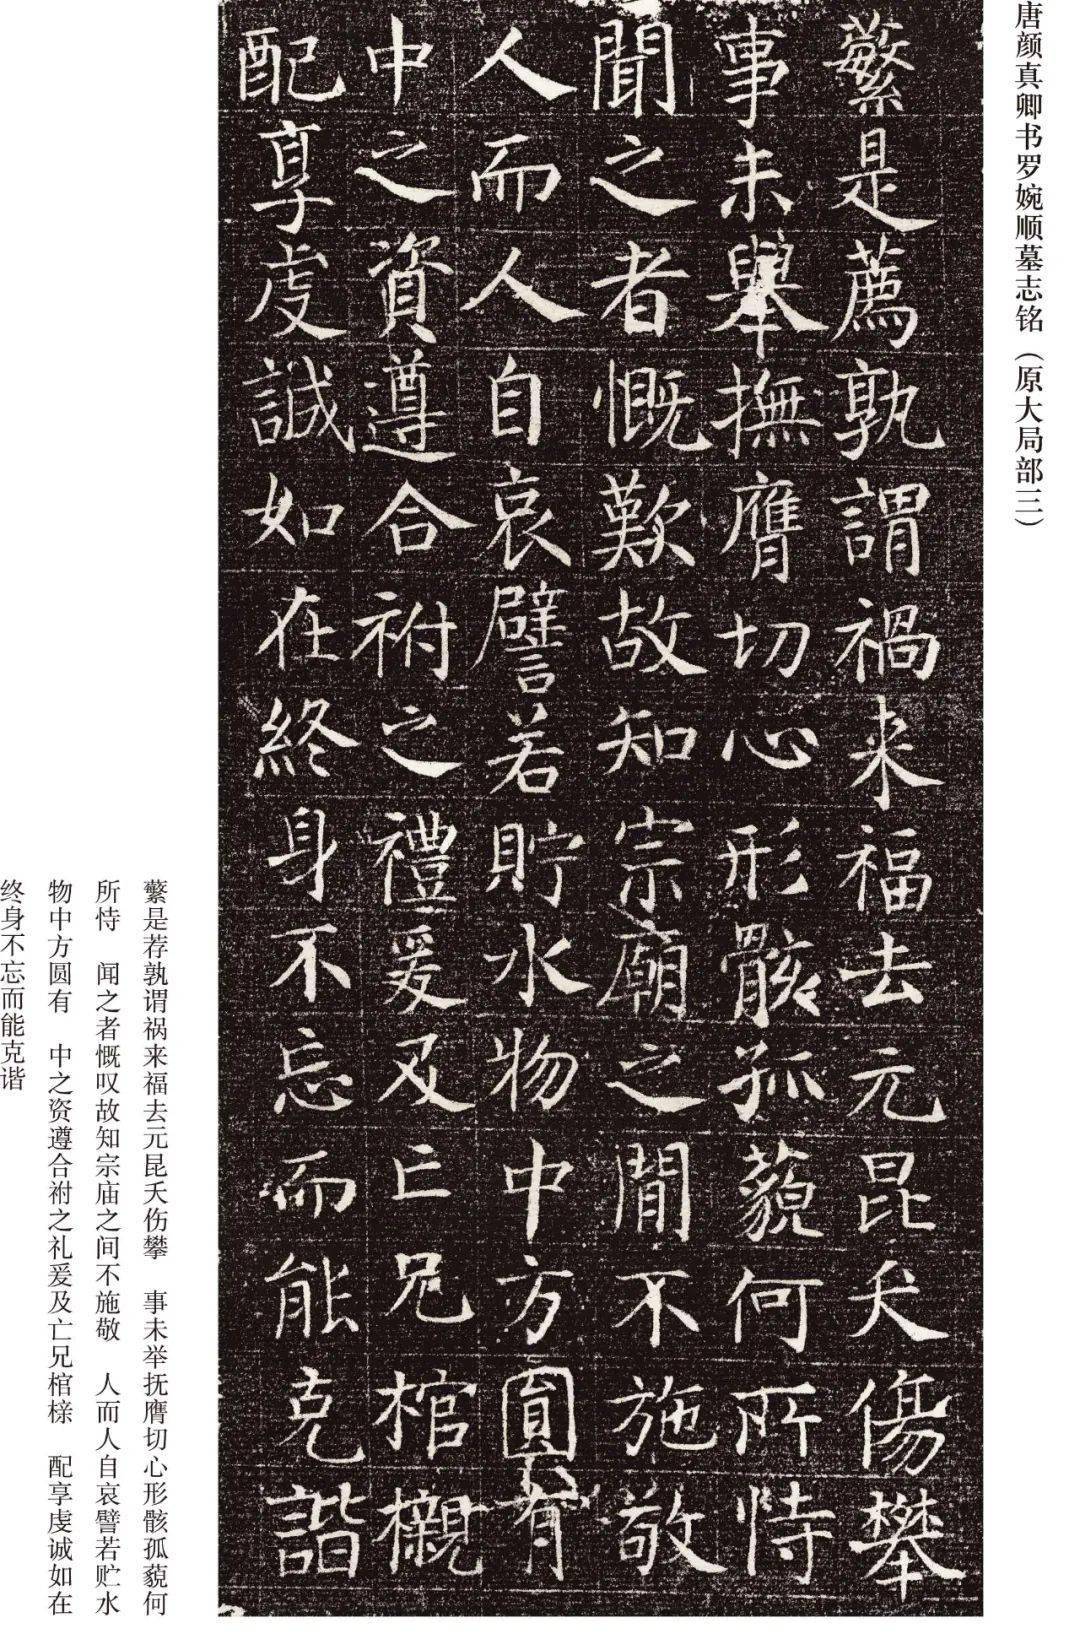 唐颜真卿书罗婉顺墓志铭（原大局部三）
蘩是薦孰謂禍来福去元昆夭傷攀
事未舉撫膺切心形骸孤藐何所恃
聞之者慨歎故知宗廟之間不施敬
人而人自哀譬若貯水物中方圓有
中之資遵合祔之禮爰及亡兄棺櫬
配享虔誠如在終身不忘而能克諧
蘩是荐孰谓祸来福去元昆夭伤攀　事未举抚膺切心形骸孤藐何
所恃　闻之者慨叹故知宗庙之间不施敬　人而人自哀譬若贮水
物中方圆有　中之资遵合祔之礼爰及亡兄棺榇　配享虔诚如在
终身不忘而能克谐